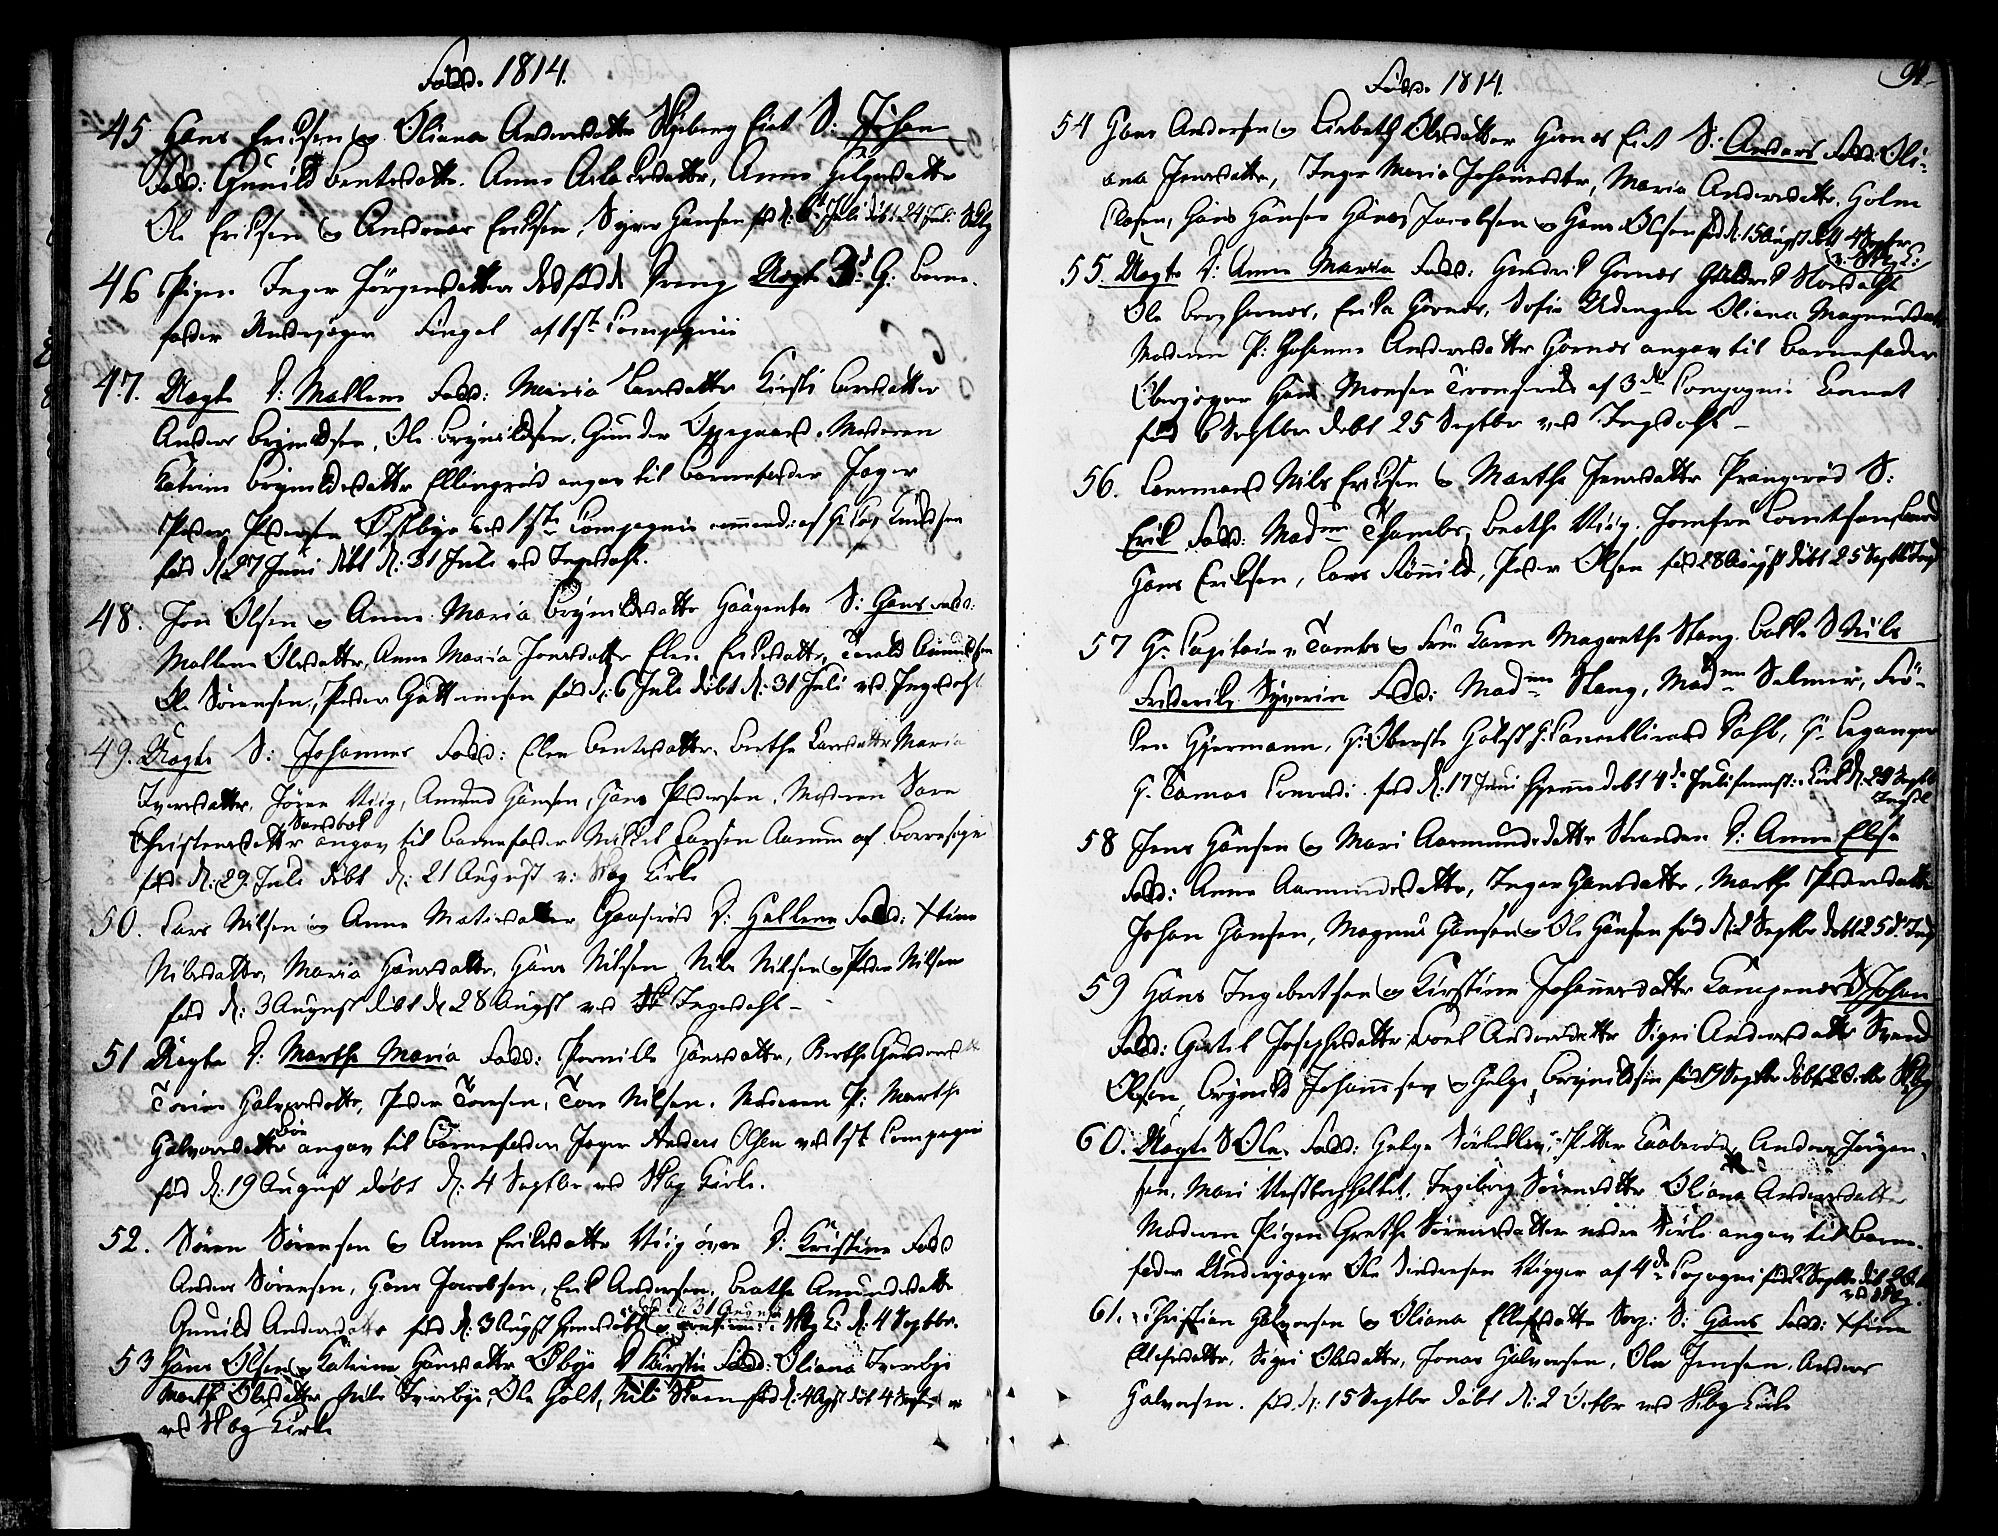 Fødd. 1814.
45 Hans Eriksen og Oliana Andersdatter Skjeberg Eiet S: Johan
Fadd: Gunild Bentsdatter. Anne Aslaksdatter, Anne Helgesdatter
Ole Eriksen og Andreas Eriksen, Syver Hansen fød d: 6 Juli døbt 24 Juli Skbg
46 Pigen Inger Jørgensdatter dødfødt Dreng Uægte Barne-
fader Underjæger Engel af 1ste Compagnie
47. Uægte D: Mallene Fadd: Maria Larsdatter Kirsti Larsdatter
Anders Brynildsen, Ole Brynildsen, Gunder Oppegaard. Moderen
Katrine Brynildsdatter Ellingrød angav til Barnefader Jæger
Peder Pedersen Østbye ved 1ste Compagnie af H: Cap Knudsen
fød d 27 Juni døbt d: 31 Juli ved Ingedahl.
48. Jon Olsen og Anne Maria Brynildsdatter S: Hans Fadd:
Mallene Olsdatter, Anne Maria Jonsdatter Elen Eriksdatter, Torald Amundsen
Ole Sørensen, Peder Guttormsen fød d: 6 Juli døbt d: 31 Juli ved Ingedahl
49. Uægte S: Johannes Fadd: Elen Bentsdatter, Berthe Larsdatter Maria
Iversdatter, Jøren Viig, Amund Hansen, Hans Pedersen. Moderen Sara
Sandbøl
Christensdatter angav til Barnefader Mikkel Larsen Aarum af Borresogn
fød d: 29. Juli døbt d: 21 August v: Skbg Kirke
50. Lars Nilsen og Anne Matisdatter Gaaserød D: Hellene Fadd: Xtine
Nilsdatter, Maria Hansdatter, Hans Nilsen, Nils Nilsen og Peder Nilsen
fød d: 3 August døbt d 28 August ved Ingedahl –
51 Uægte D: Marthe Maria Fadd: Pernille Hansdatter, Berthe Gundersdtr
Torine Halvorsdatter, Peder Torsen, Tore Nilsen. Moderen P: Marthe
Bøe
Halvorsdatter angav til Barnefader Jæger Anders Olsen ved 1st Compagni
fød d: 19 August døbt d: 4 Septbr ved Skbg Kirke.
52. Søren Sørensen og Anne Eriksdatter Viig øvre D: Kristine Fadd
Anders Sørensen, Hans Jacobsen, Erik Andersen, Berthe Amundsdatter
Gunild Andersdatter fød d: 3 August hjemmedøbt d: 31 August Skbg K: d: 4 Septbr.
53 Hans Olsen og Katrine Hansdatter Øbye D Kirstie Fadd: Oliana Tverbye
Marthe Olsdatter, Nils Tverbye, Ole Holt, Nils Skaen fød d: 4 Agst døbt 4 Septbr
ved Skbg Kirke
94
Fødd. 1814.
54 Hans Andersen og Lisbeth Olsdatter Hornes Eiet S: Anders Fadd: Oli-
ana Jensdatter, Inger Maria Johannesdtr, Maria Andersdatter, Holm
Olsen, Hans Hansen Hornes, Jacobsen og Hans Olsen fød d: 15 August døbt 4 Septbr
v: Skbg K:
55. Uægte D: Anne Maria Fadd: Hendrik Hornes Nordahl
Ole Berg Hornes, Erika Hornes, Sofie Udengen Oliana Magnusdatter
Moderen P: Johanne Andersdatter Hornes angav til Barnefader
Oberjæger Hans Monsen Tronserud af 3die Compagnie Barnet
fød 6 Septbr døbt 25 Septbr ved Ingedahl –
56. Lensmand Nils Eriksen og Marthe Jensdatter Prangerød S:
Erik Fadd: Madme Thambs, Berthe Viig. Jomfru Lorentsen
Hans Eriksen, Lars Rønnild, Peder Olsen fød 28 August døbt 25 Septbr Ingd
57 Hr. Capitain v. Tambs og Frue Karen Magrethe Stang Balle S Nils
Friderik Syverin Fadd: Madme Stang, Madme Selmer, Frø-
ken Hjermann, Hr: Oberste Holst Hr: Cancelliraad Dahl, Hr: Leganger
Hr. Tomas Conradi. fød d: 17 Juni hjemmedøbt 4de Juli Kirke d: 25 Septbr
Ingdl
58 Jens Hansen og Mari Aamundsdatter Stranden D: Anne Elise
Fadd: Anne Aamundsdatter, Inger Hansdatter, Marthe Pedersdatter
Johan Hansen, Magnus Hansen og Ole Hansen fød d: 2 Septbr døbt 25 d: Ingd
59 Hans Ingebretsen og Kirstine Johannesdatter Kampenæs S Johan
Fadd: Gurtel Josephsdatter, Joel Andersdatter Sigri Andersdatter Svend
Olsen, Brynild Johannesen og Helge Brynildsen fød 19 Septbr døbt 2 Octbr Skbg
60. Uægte S Ole, Fadd: Helge Sørhedlen, Petter Kaaberød, Anders Jørgen-
sen, Mari Vestbechholtet, Ingeborg Sørensdatter Oliana Andersdatter
Moderen Pigen Grethe Sørensdatter nedre Kirke angav til Barne-
fader Underjæger Ole Sindersen Vigger af 4de Compagni fød 22 Septbr døbt 2 Octbr
ved Skbg.
61. Christian Halvorsen og Oliana Ellefsdatter Torp: S: Hans Fadd: Xtine
Ellefsdatter, Sigri Olsdatter, Jonas Halvorsen, Ole Jensen, Anders
Halvorsen. fød d: 15 Septbr døbt d: 2 Octbr ved Skbg Kirke